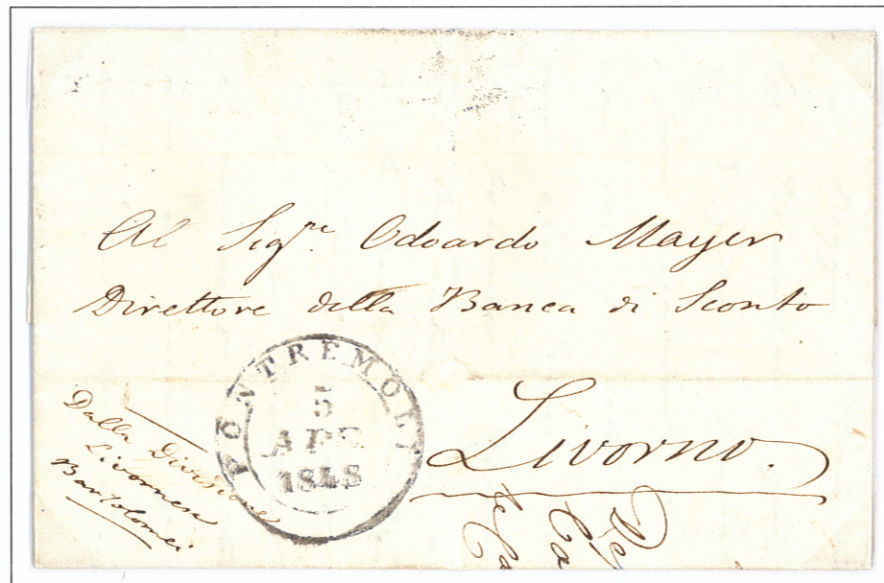 Al Sigre. Odoardo Mayer
Direttore della Banca di Sconto
Livorno.
PONTREMOLI
5
APR
1848
Dalla Divisione
Livornese
Bartolomei